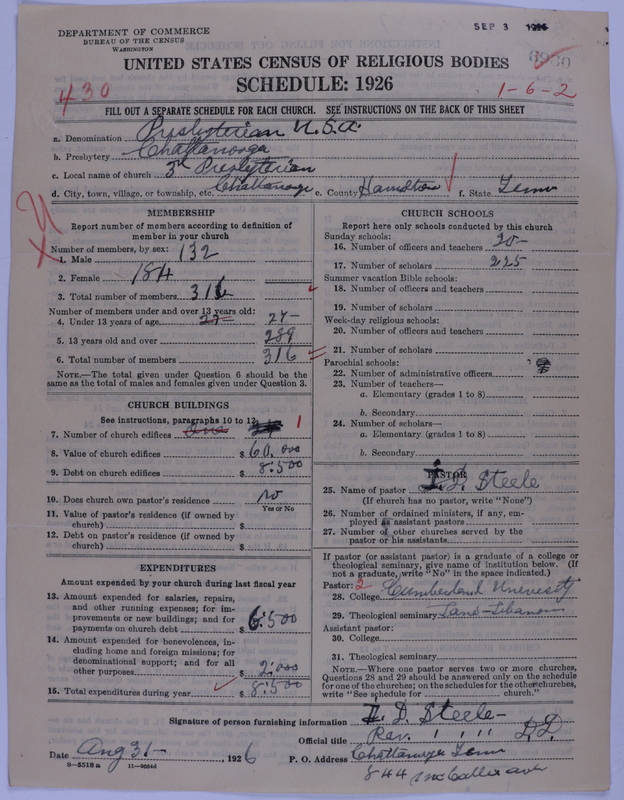 DEPARTMENT OF COMMERCE
BUREAU OF THE CENSUS
WASHINGTON
SEP 3 1926
UNITED STATES CENSUS OF RELIGIOUS BODIES
SCHEDULE: 1926
430
1-6-2
FILL OUT A SEPARATE SCHEDULE FOR EACH CHURCH. SEE INSTRUCTIONS ON THE BACK OF THIS SHEET
a. Denomination Presbyterian U.S.A.
b. Presbytery Chattanooga
c. Local name of church 3rd Presbyterian
d. City, town, village, or township, etc. Chattanooga e. County Hamilton f. State Tenn
MEMBERSHIP
Report number of members according to definition of member in your church
Number of members, by sex:
1. Male 132
2. Female 184
3. Total number of members 316
Number of members under and over 13 years old:
4. Under 13 years of age 27 27
5. 13 years old and over 289
6. Total number of members 316
NOTE.—The total given under Question 6 should be the same as the total of males and females given under Question 3.
CHURCH BUILDINGS
See instructions, paragraphs 10 to 12
7. Number of church edifices One 1
8. Value of church edifices $ 60.000
9. Debt on church edifices $ 8.500
10. Does church own pastor's residence No
Yes or No
11. Value of pastor's residence (if owned by church) $
12. Debt on pastor's residence (if owned by church) $
EXPENDITURES
Amount expended by your church during last fiscal year
13. Amount expended for salaries, repairs, and other running expenses; for improvements or new buildings; and for payments on church debt $ 6.500
14. Amount expended for benevolences, including home and foreign missions; for denominational support; and for all other purposes $ 2.000
15. Total expenditures during year $ 8.500
CHURCH SCHOOLS
Report here only schools conducted by this church
Sunday schools:
16. Number of officers and teachers 20
17. Number of scholars 225
Summer vacation Bible schools:
18. Number of officers and teachers
19. Number of scholars
Week-day religious schools:
20. Number of officers and teachers
21. Number of scholars
Parochial schools:
22. Number of administrative officers
23. Number of teachers—
a. Elementary (grades 1 to 8)
b. Secondary
24. Number of scholars—
a. Elementary (grades 1 to 8)
b. Secondary
PASTOR
25. Name of pastor I. D. Steele
(If church has no pastor, write "None")
26. Number of ordained ministers, if any, employed as assistant pastors
27. Number of other churches served by the pastor or his assistants
If pastor (or assistant pastor) is a graduate of a college or theological seminary, give name of institution below. (If not a graduate, write "No" in the space indicated.)
Pastor: 2
28. College Cumberland University
29. Theological seminary Lebanon
Assistant pastor:
30. College
31. Theological seminary
NOTE.—Where one pastor serves two or more churches, Questions 28 and 29 should be answered only on the schedule for one of the churches; on the schedules for the other churches, write "See schedule for church."
Signature of person furnishing information I. D. Steele
Official title Rev. D.D.
Date Aug 31 , 1926 P. O. Address Chattanooga Tenn
844 McCallie ave
8-5518 a